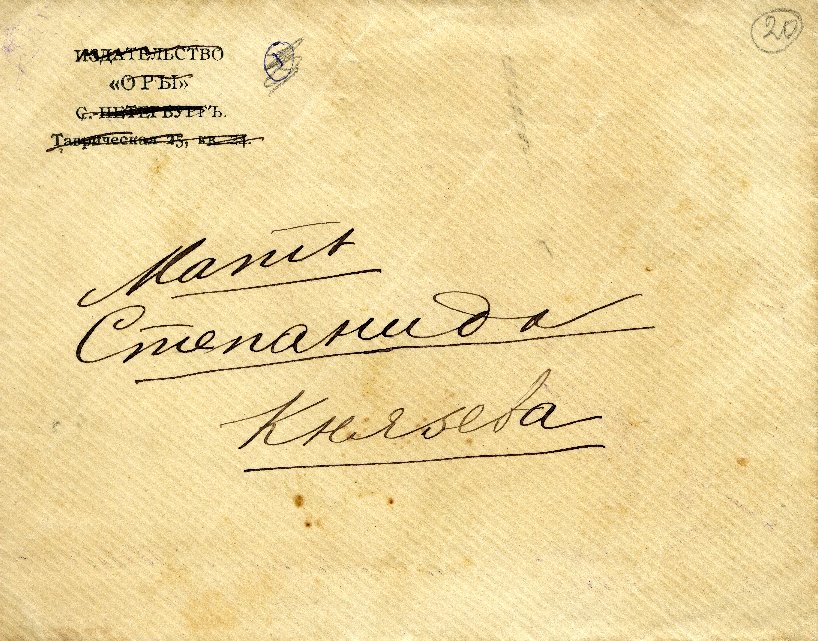 ИЗДАТЕЛЬСТВО
«ОРЫ»
С.-ПЕТЕРБУРГЪ.
Таврическая 25, кв. 24.
20
Мать
Степанида
Князева